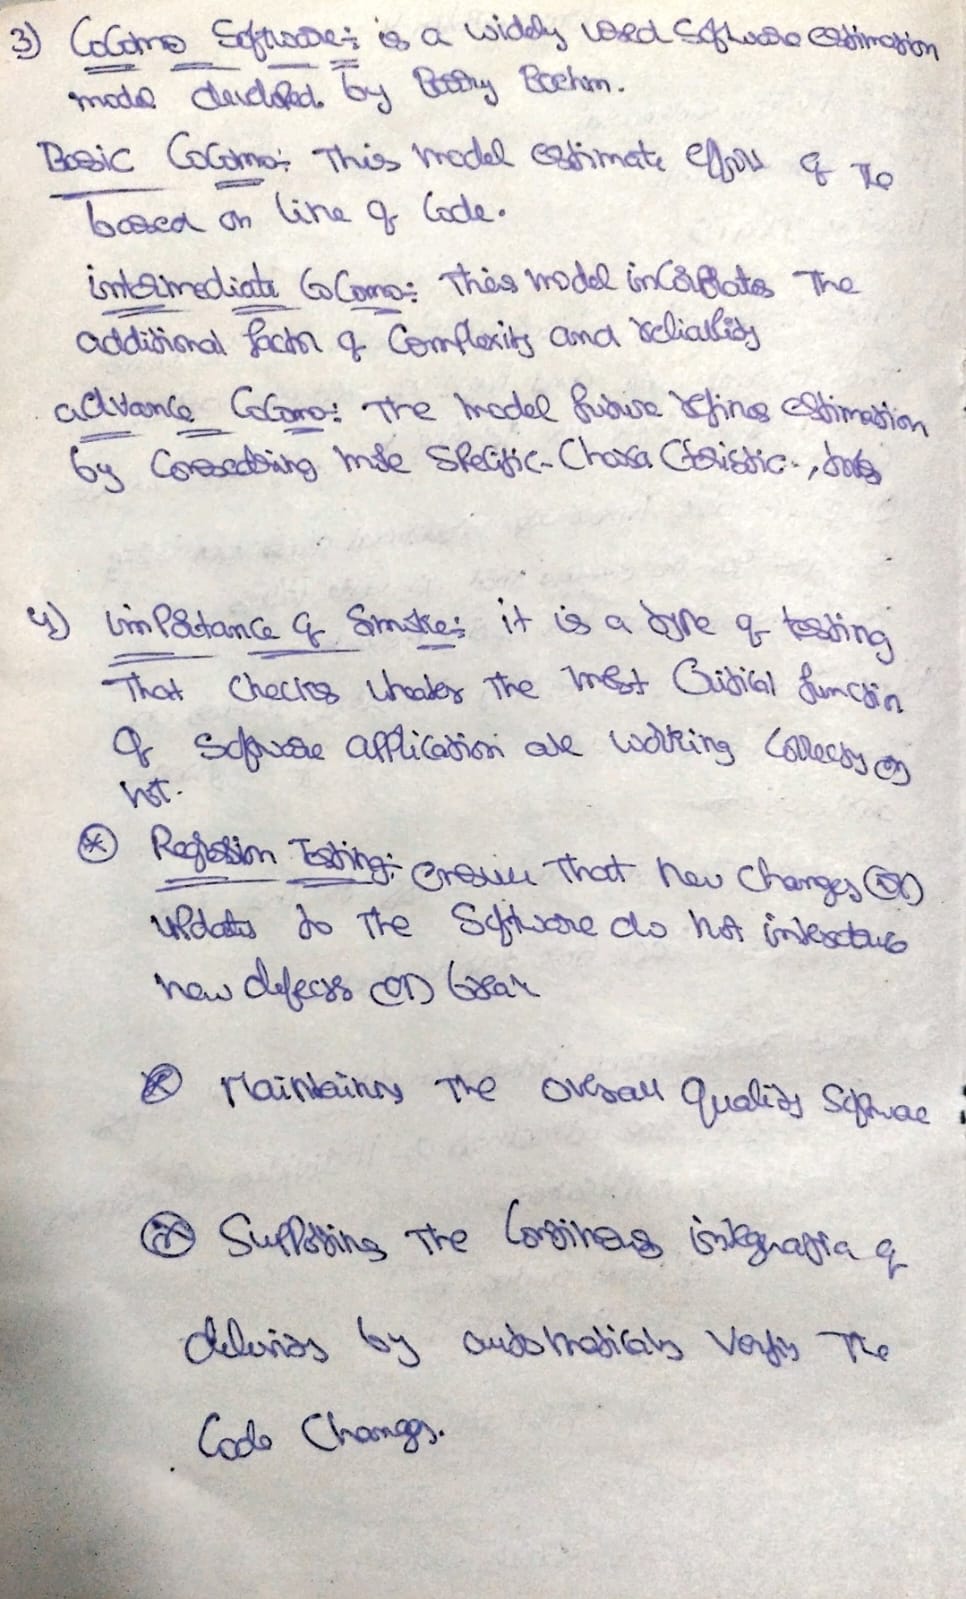 3) CoComo Software: is a widely used Software estimation
model developed by Barry Boehm.
Basic CoComo: This model estimate effort of The
based on line of Code.
intermediate CoComo: This model incorporates The
additional factor of Complexity and reliability
advance CoComo: The model future refines estimation
by Considering more Specific Characteristic,
4) importance of Smoke: it is a type of testing
That checks wheather The most Critical function
of software application are working Correctly or
not.
Regression Testing: ensure That new Changes (or)
updates to The Software do not introduce
new defects (or) break
Maintaining The overall Quality Software
Supporting The Continous integration of
delivery by automatically Verify The
Code Changes.